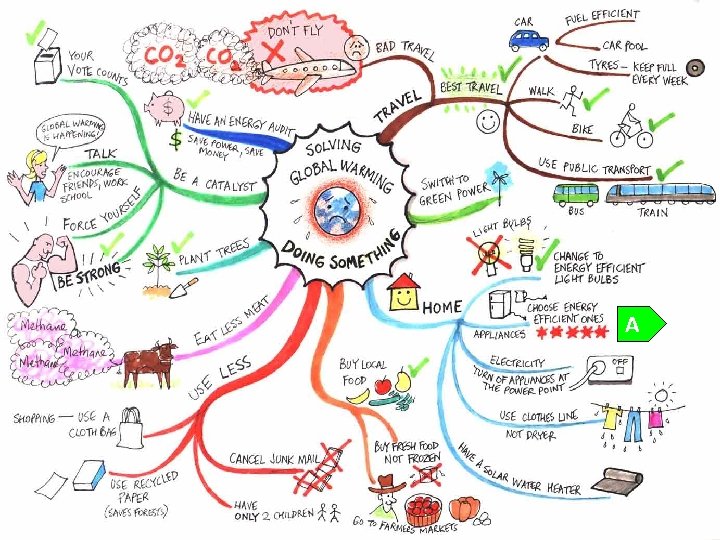 YOUR
VOTE COUNTS
CO2
CO2
DON'T FLY
BAD TRAVEL
CAR
FUEL EFFICIENT
CAR POOL
TYRES - KEEP FULL
EVERY WEEK
TRAVEL
BEST TRAVEL
WALK
BIKE
USE PUBLIC TRANSPORT
BUS
TRAIN
HAVE AN ENERGY AUDIT
$ SAVE POWER, SAVE
MONEY
GLOBAL WARMING
IS HAPPENING!
TALK
ENCOURAGE
FRIENDS, WORK
SCHOOL
BE A CATALYST
FORCE YOURSELF
BE STRONG
PLANT TREES
SOLVING
GLOBAL WARMING
DOING SOMETHING
SWITCH TO
GREEN POWER
LIGHT BULBS
CHANGE TO
ENERGY EFFICIENT
LIGHT BULBS
HOME
CHOOSE ENERGY
EFFICIENT ONES
APPLIANCES
A
ELECTRICITY
TURN OF APPLIANCES AT
THE POWER POINT
OFF
USE CLOTHES LINE
NOT DRYER
HAVE A SOLAR WATER HEATER
Methane
Methane
Methane
EAT LESS MEAT
USE LESS
SHOPPING - USE A
CLOTH BAG
USE RECYCLED
PAPER
(SAVES FORESTS)
CANCEL JUNK MAIL
HAVE
ONLY 2 CHILDREN
BUY LOCAL
FOOD
BUY FRESH FOOD
NOT FROZEN
GO TO FARMERS MARKETS